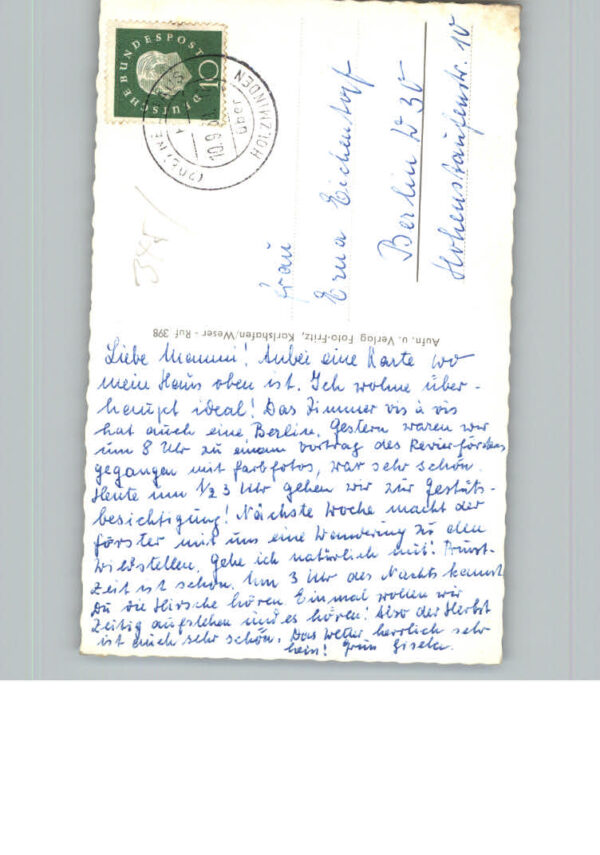 DEUTSCHE BUNDESPOST
10
HOLZMINDEN
über
10.9
Frau
Erna Eichendorf
Berlin W 30
Hohenstaufenstr. 10
Aufn. u. Verlag Foto-Fritz, Karlshafen/Weser - Ruf 398
Liebe Mammi! Anbei eine Karte wo
mein Haus oben ist. Ich wohne über-
haupt ideal! Das Zimmer vis à vis
hat auch eine Berlin. Gestern waren wir
um 8 Uhr zu einem Vortrag des Revierförsters
gegangen mit Farbfotos, war sehr schön.
Heute um 1/2 3 Uhr gehen wir zur Gestüts-
besichtigung! Nächste Woche macht der
Förster mit uns eine Wanderung zu den
Wildstellen. Gehe ich natürlich mit! Brunst-
Zeit ist schon. Um 3 Uhr des Nachts kannst
Du die Hirsche hören. Einmal wollen wir
Zeitig aufstehen und es hören! Also der Herbst
ist auch sehr schön. Das Wetter herrlich sehr
Gisela.